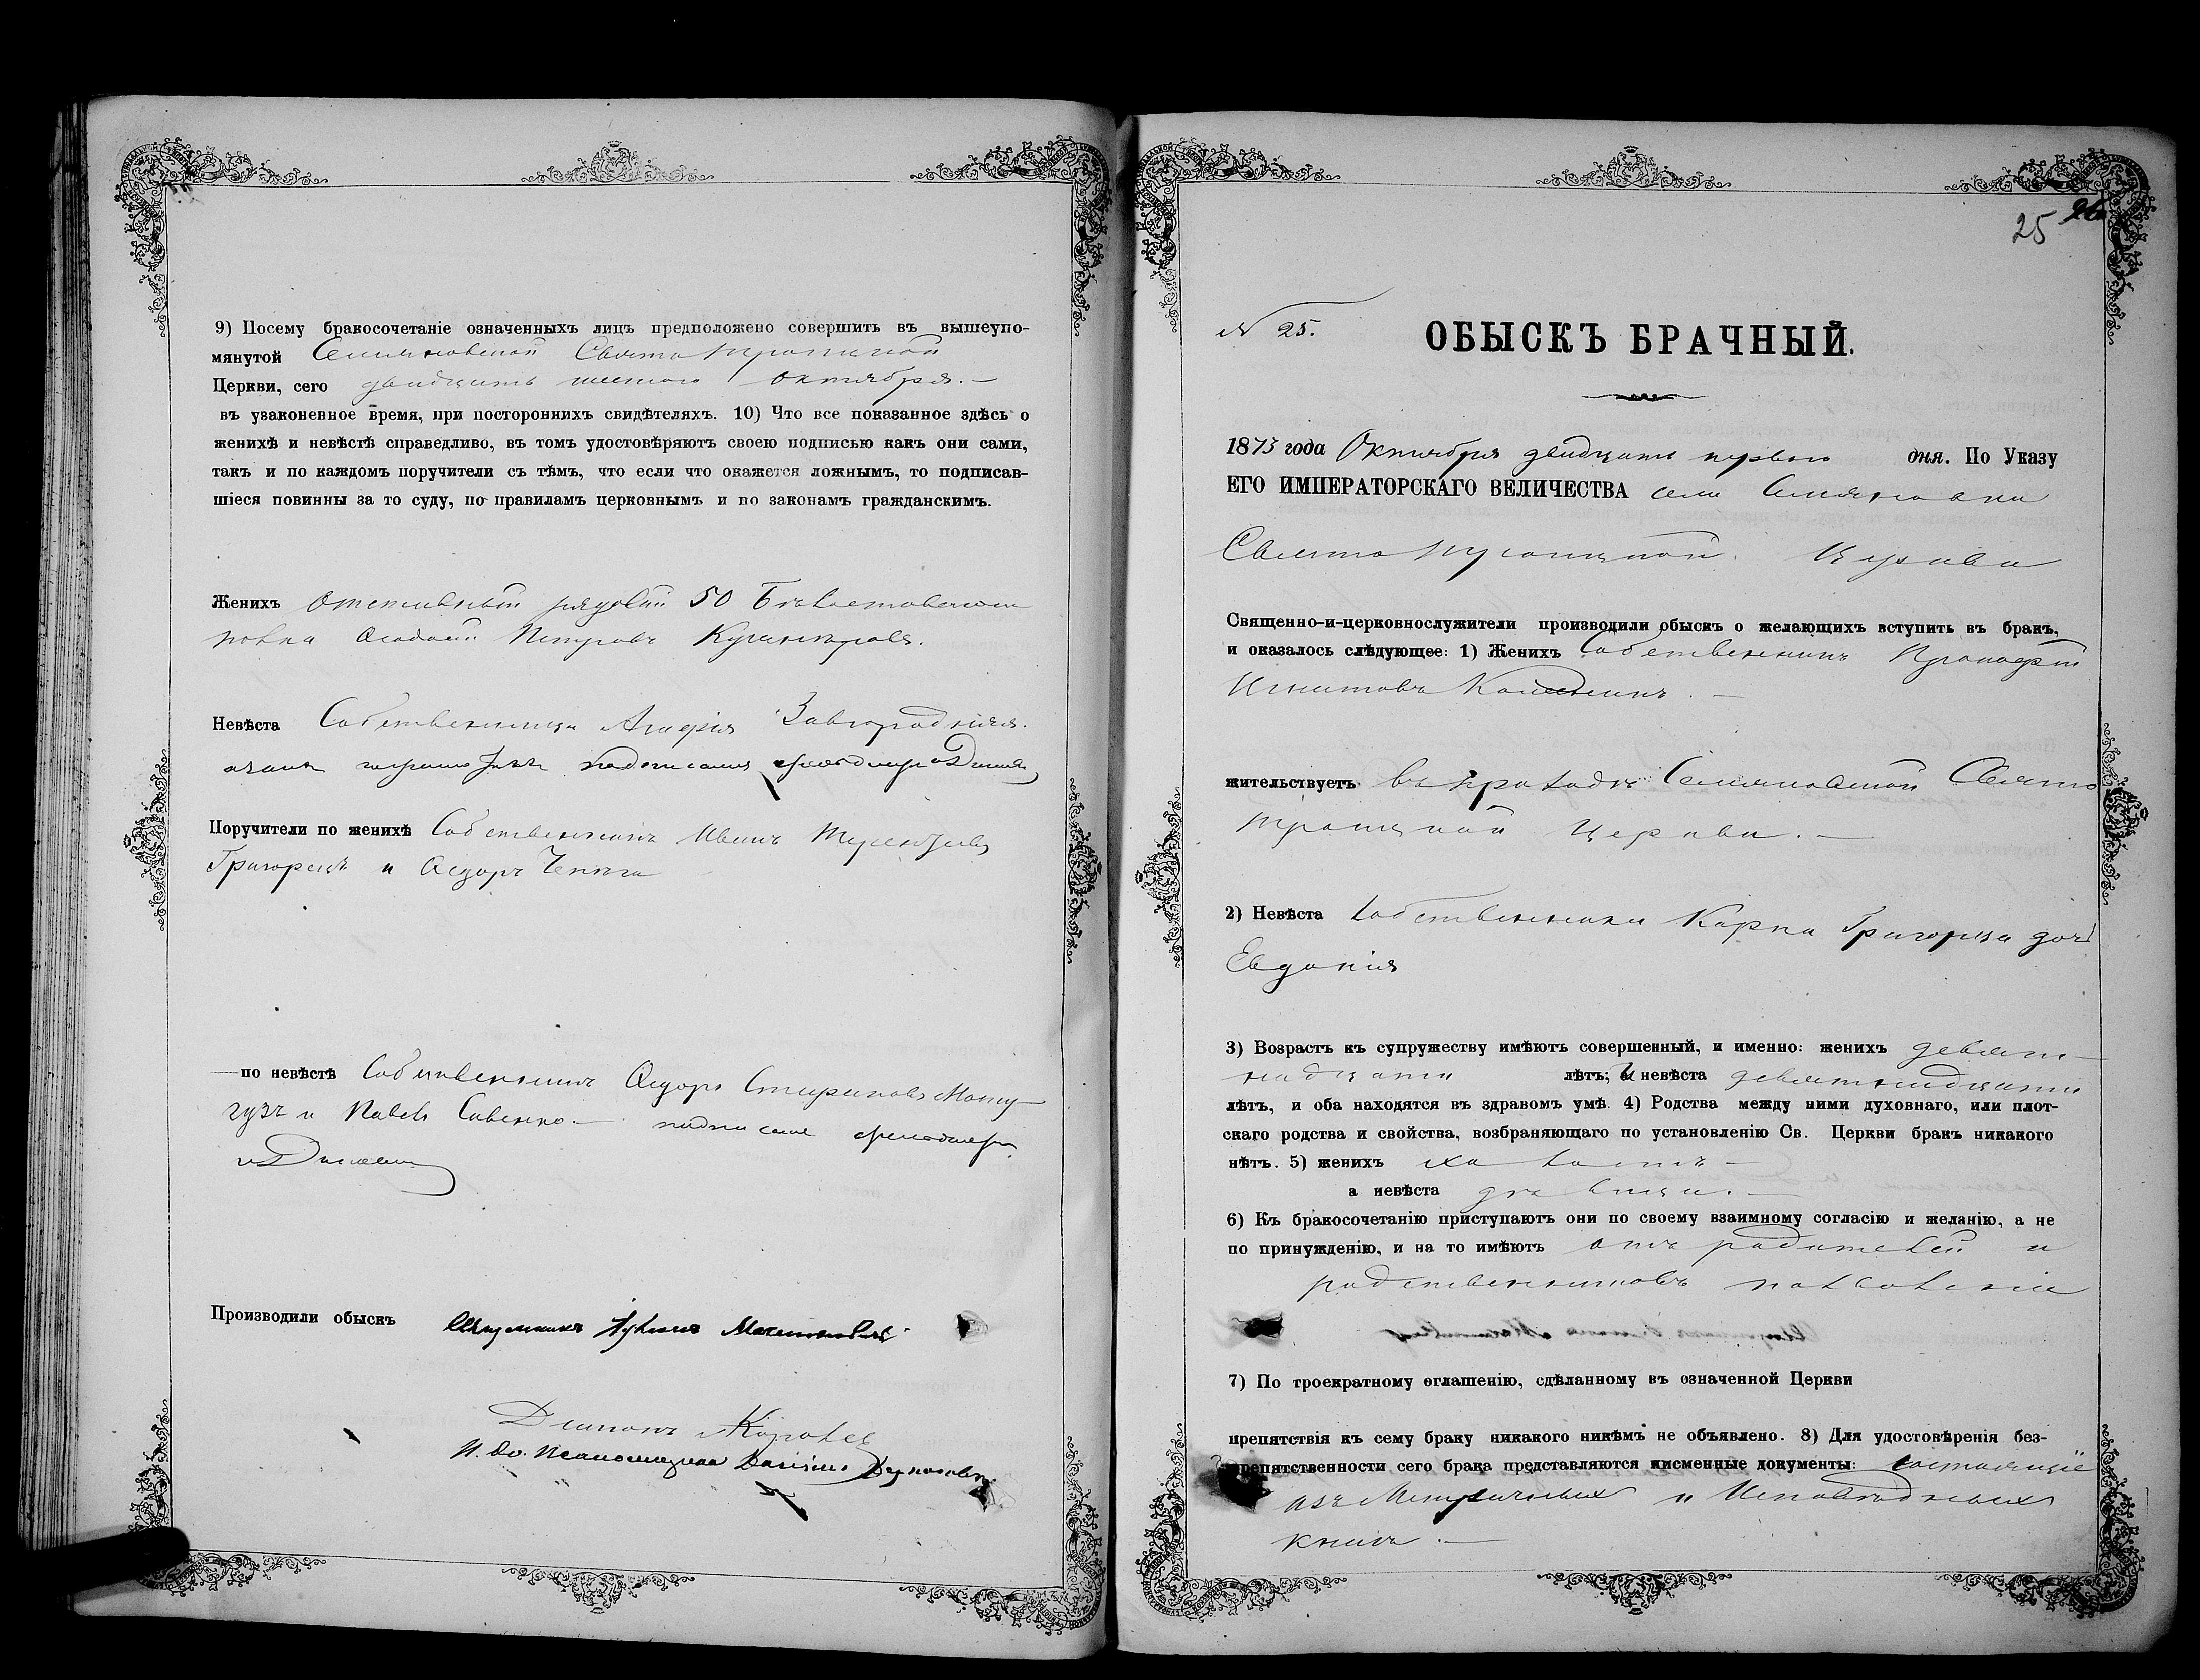 9) Посему бракосочетаніе означенныхъ лицъ предположено совершить въ вышеупо-
мянутой Семяновской Свято Троицкой
Церкви, сего двадцать шестого октября. —
въ узаконенное время, при постороннихъ свидѣтеляхъ. 10) Что все показанное здѣсь о
женихѣ и невѣстѣ справедливо, въ томъ удостовѣряютъ своею подписью какъ они сами,
такъ и по каждомъ поручители съ тѣмъ, что если что окажется ложнымъ, то подписав-
шіеся повинны за то суду, по правиламъ церковнымъ и по законамъ гражданскимъ.
Женихъ Отставный рядовой 50 Бѣлостокскаго
полка Петровъ
Невѣста Собственница Завгородняя.
Поручители по женихѣ Собственникъ Иванъ Терентьевъ
Григорецъ и Ѳедоръ
по невѣстѣ Собственникъ Ѳедоръ
и Павелъ Савенко —
Производили обыскъ Священникъ Максимовичъ
Василій
25 26
N 25.
ОБЫСКЪ БРАЧНЫЙ.
1873 года Октября двадцать перваго дня. По Указу
ЕГО ИМПЕРАТОРСКАГО ВЕЛИЧЕСТВА села Семяновки
Святотроицкой Церкви
Священно-и-церковнослужители производили обыскъ о желающихъ вступить въ бракъ,
и оказалось слѣдующее: 1) Женихъ Собственникъ Прокофій
Игнатовъ
жительствуетъ въ приходѣ Семяновской Свято
троицкой Церкви. —
2) Невѣста Собственника Карпа Григорца дочь
Евдокія
3) Возрастъ къ супружеству имѣютъ совершенный, и именно: женихъ девят-
надцати лѣтъ; а невѣста девятнадцати
лѣтъ, и оба находятся въ здравомъ умѣ. 4) Родства между ними духовнаго, или плот-
скаго родства и свойства, возбраняющаго по установленію Св. Церкви бракъ никакого
нѣтъ. 5) женихъ холостъ —
а невѣста дѣвица. —
6) Къ бракосочетанію приступаютъ они по своему взаимному согласію и желанію, а не
по принужденію, и на то имѣютъ отъ родителей и
родственниковъ позволеніе
7) По троекратному оглашенію, сдѣланному въ означенной Церкви
препятствія къ сему браку никакого никѣмъ не объявлено. 8) Для удостовѣренія без-
препятственности сего брака представляются писменные документы: состоящіе
изъ Метрическихъ и Исповѣдныхъ
книгъ. —